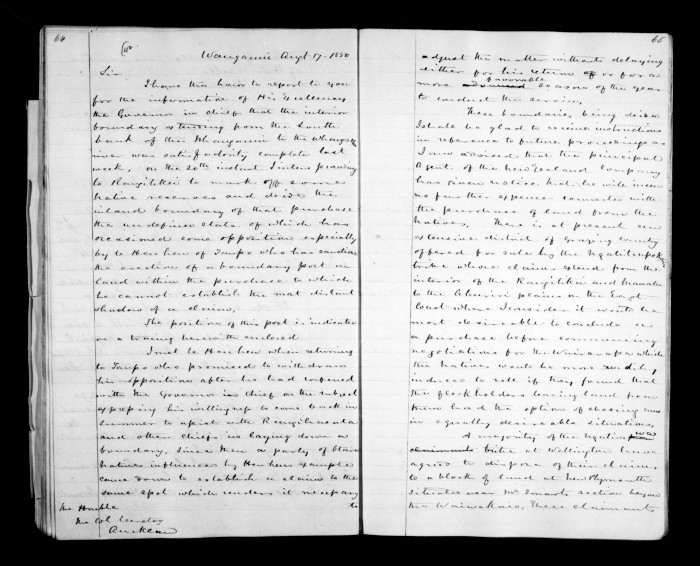 64
Wanganui Augt 17. 1850
Sir
I have the honor to report to you
for the information of His Excellency
the Governor in chief that the interior
boundary extending from the South
bank of the Wanganui to the Whangaehu
river was satisfactorily complete last
week, on the 20th instant I intend proceeding
to Rangitikei to mark off some
native reserves and decide the
inland boundary of that purchase
the undefined state of which has
occasioned some opposition especially
by te Heuheu of Taupo who has sanctioned
the erection of a boundary post on
land within the purchase to which
he cannot establish the most distant
shadow of a claim.
The position of this post is indicated
on a tracing herewith enclosed
I met te Heuheu when returning
to Taupo who promised to withdraw
his opposition after he had conferred
with the Governor in chief on the subject
expressing his willingness to come back in
summer to assist with
and other chiefs in laying down a
boundary, since then a party of
natives influenced by Heuheus example
came down to establish a claim to the
same spot which renders it necessary
to
The Honble
The Col Secretary
Auckland
65
adjust the matter without delaying
either for his return or for a
favorable
more season of the year
to conduct the service.
These boundaries being defined
I shall be glad to receive instructions
in reference to future proceedings as
I am advised that the principal
Agent of the New Zealand Company
has given notice that he will incur
no further expense connected with
the purchase of land from the
natives. There is at present an
extensive district of Grazing country
offered for sale by the
tribe whose claims extend from the
interior of the Rangitikei and Manawatu
to the Ahuriri plains on the East
Coast where I consider it would be
most desireable to conclude
a purchase before commencing
negotiations for the Wairarapa which
the Natives would be more readily
induced to sell if they found that
the flockholders leasing land from
them had the option of choosing runs
in equally desireable situations.
A majority of the Ngatiawa
claimants tribe at Wellington have
agreed to dispose of their claims
to a block of land at New Plymouth
situated near Mr Smarts section beyond
the Waiwakaio. These claimants